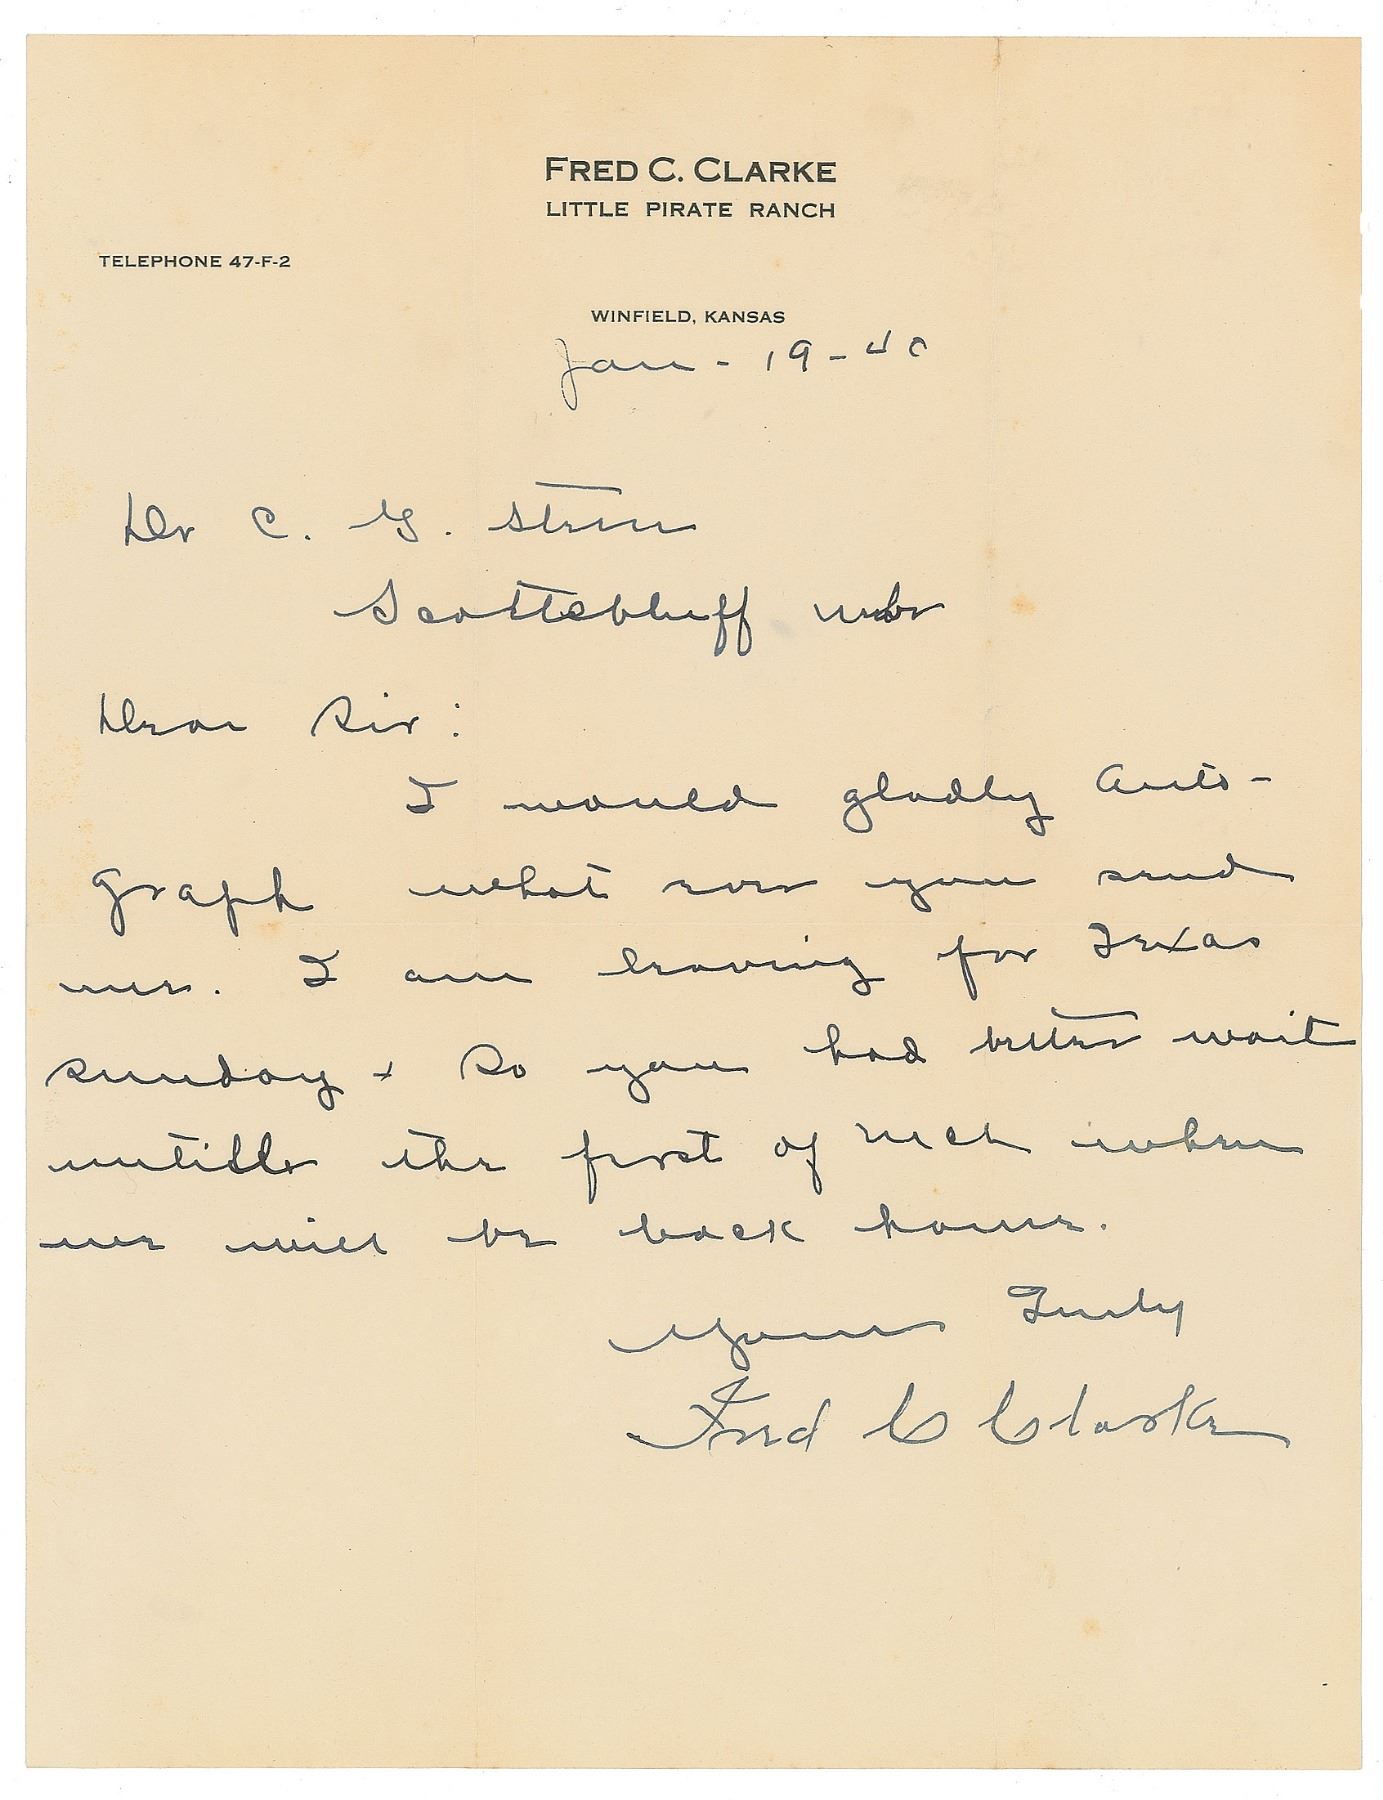 FRED C. CLARKE
LITTLE PIRATE RANCH
TELEPHONE 47-F-2
WINFIELD, KANSAS
Jan - 19 - 40
Dr C. G. Stern
Scottsbluff Nebr
Dear Sir:
I would gladly Auto-
graph what ever you send
me. I am leaving for Texas
Sunday + So you had better wait
untill the first of Mch when
we will be back home.
Yours Truly
Fred C Clarke